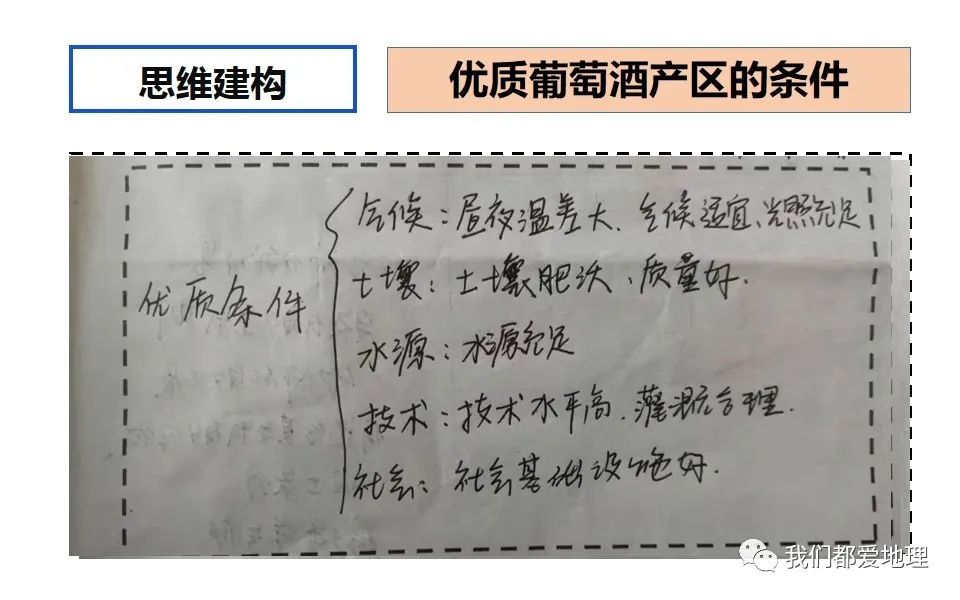 思维建构
优质葡萄酒产区的条件
优质条件
气候：昼夜温差大、气候适宜、光照充足
土壤：土壤肥沃、质量好.
水源：水源充足
技术：技术水平高、灌溉合理.
社会：社会基础设施好.
我们都爱地理